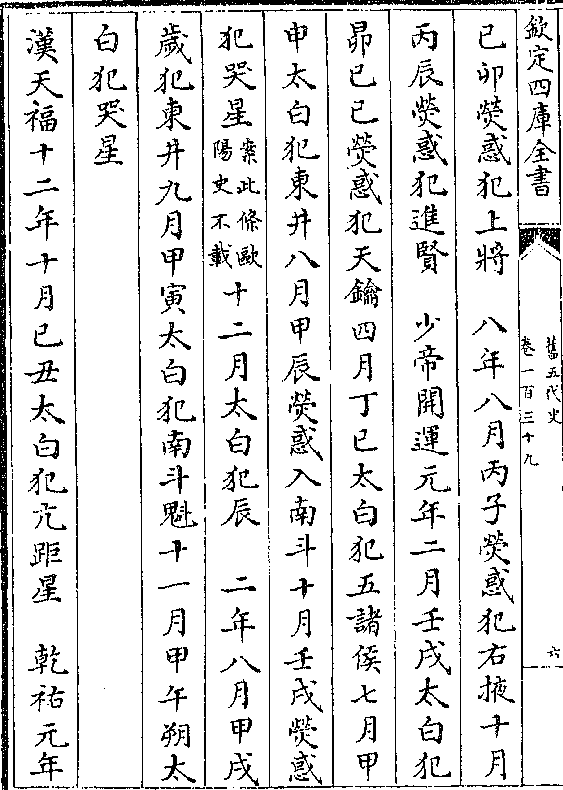 欽定四庫全書
舊五代史
卷一百三十九
六
已卯熒惑犯上將　八年八月丙子熒惑犯右掖十月
丙辰熒惑犯進賢　少帝開運元年二月壬戌太白犯
昴已巳熒惑犯天鑰四月丁巳太白犯五諸侯七月甲
申太白犯東井八月甲辰熒惑入南斗十月壬戌熒惑
犯哭星案此條歐陽史不載十二月太白犯辰　二年八月甲戌
歲犯東井九月甲寅太白犯南斗魁十一月甲午朔太
白犯哭星
漢天福十二年十月已丑太白犯亢距星　乾祐元年